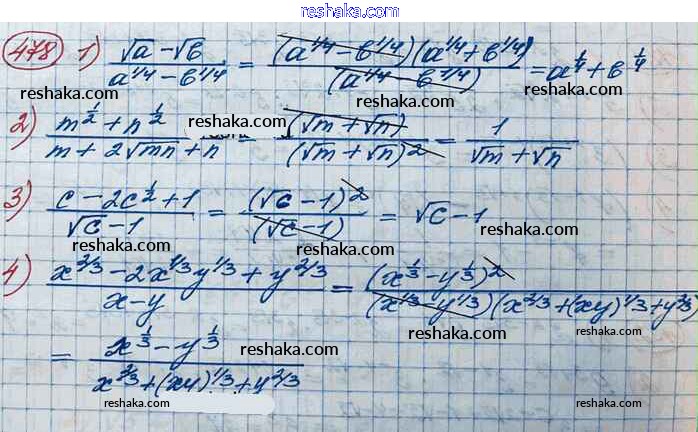 reshaka.com
478 1) (√a - √b)/(a^1/4 - b^1/4) = ((a^1/4 - b^1/4)(a^1/4 + b^1/4))/((a^1/4 - b^1/4)) = a^1/4 + b^1/4
reshaka.com reshaka.com reshaka.com
2) (m^1/2 + n^1/2)/(m + 2√mn + n) = (√m + √n)/(√m + √n)^2 = 1/(√m + √n)
reshaka.com reshaka.com reshaka.com
3) (c - 2c^1/2 + 1)/(√c - 1) = (√c - 1)^2/(√c - 1) = √c - 1
reshaka.com reshaka.com reshaka.com
4) (x^2/3 - 2x^1/3 y^1/3 + y^2/3)/(x - y) = (x^1/3 - y^1/3)^2/((x^1/3 - y^1/3)(x^2/3 + (xy)^1/3 + y^2/3))
reshaka.com reshaka.com reshaka.com
= (x^1/3 - y^1/3)/(x^2/3 + (xy)^1/3 + y^2/3)
reshaka.com reshaka.com
reshaka.com reshaka.com
reshaka.com